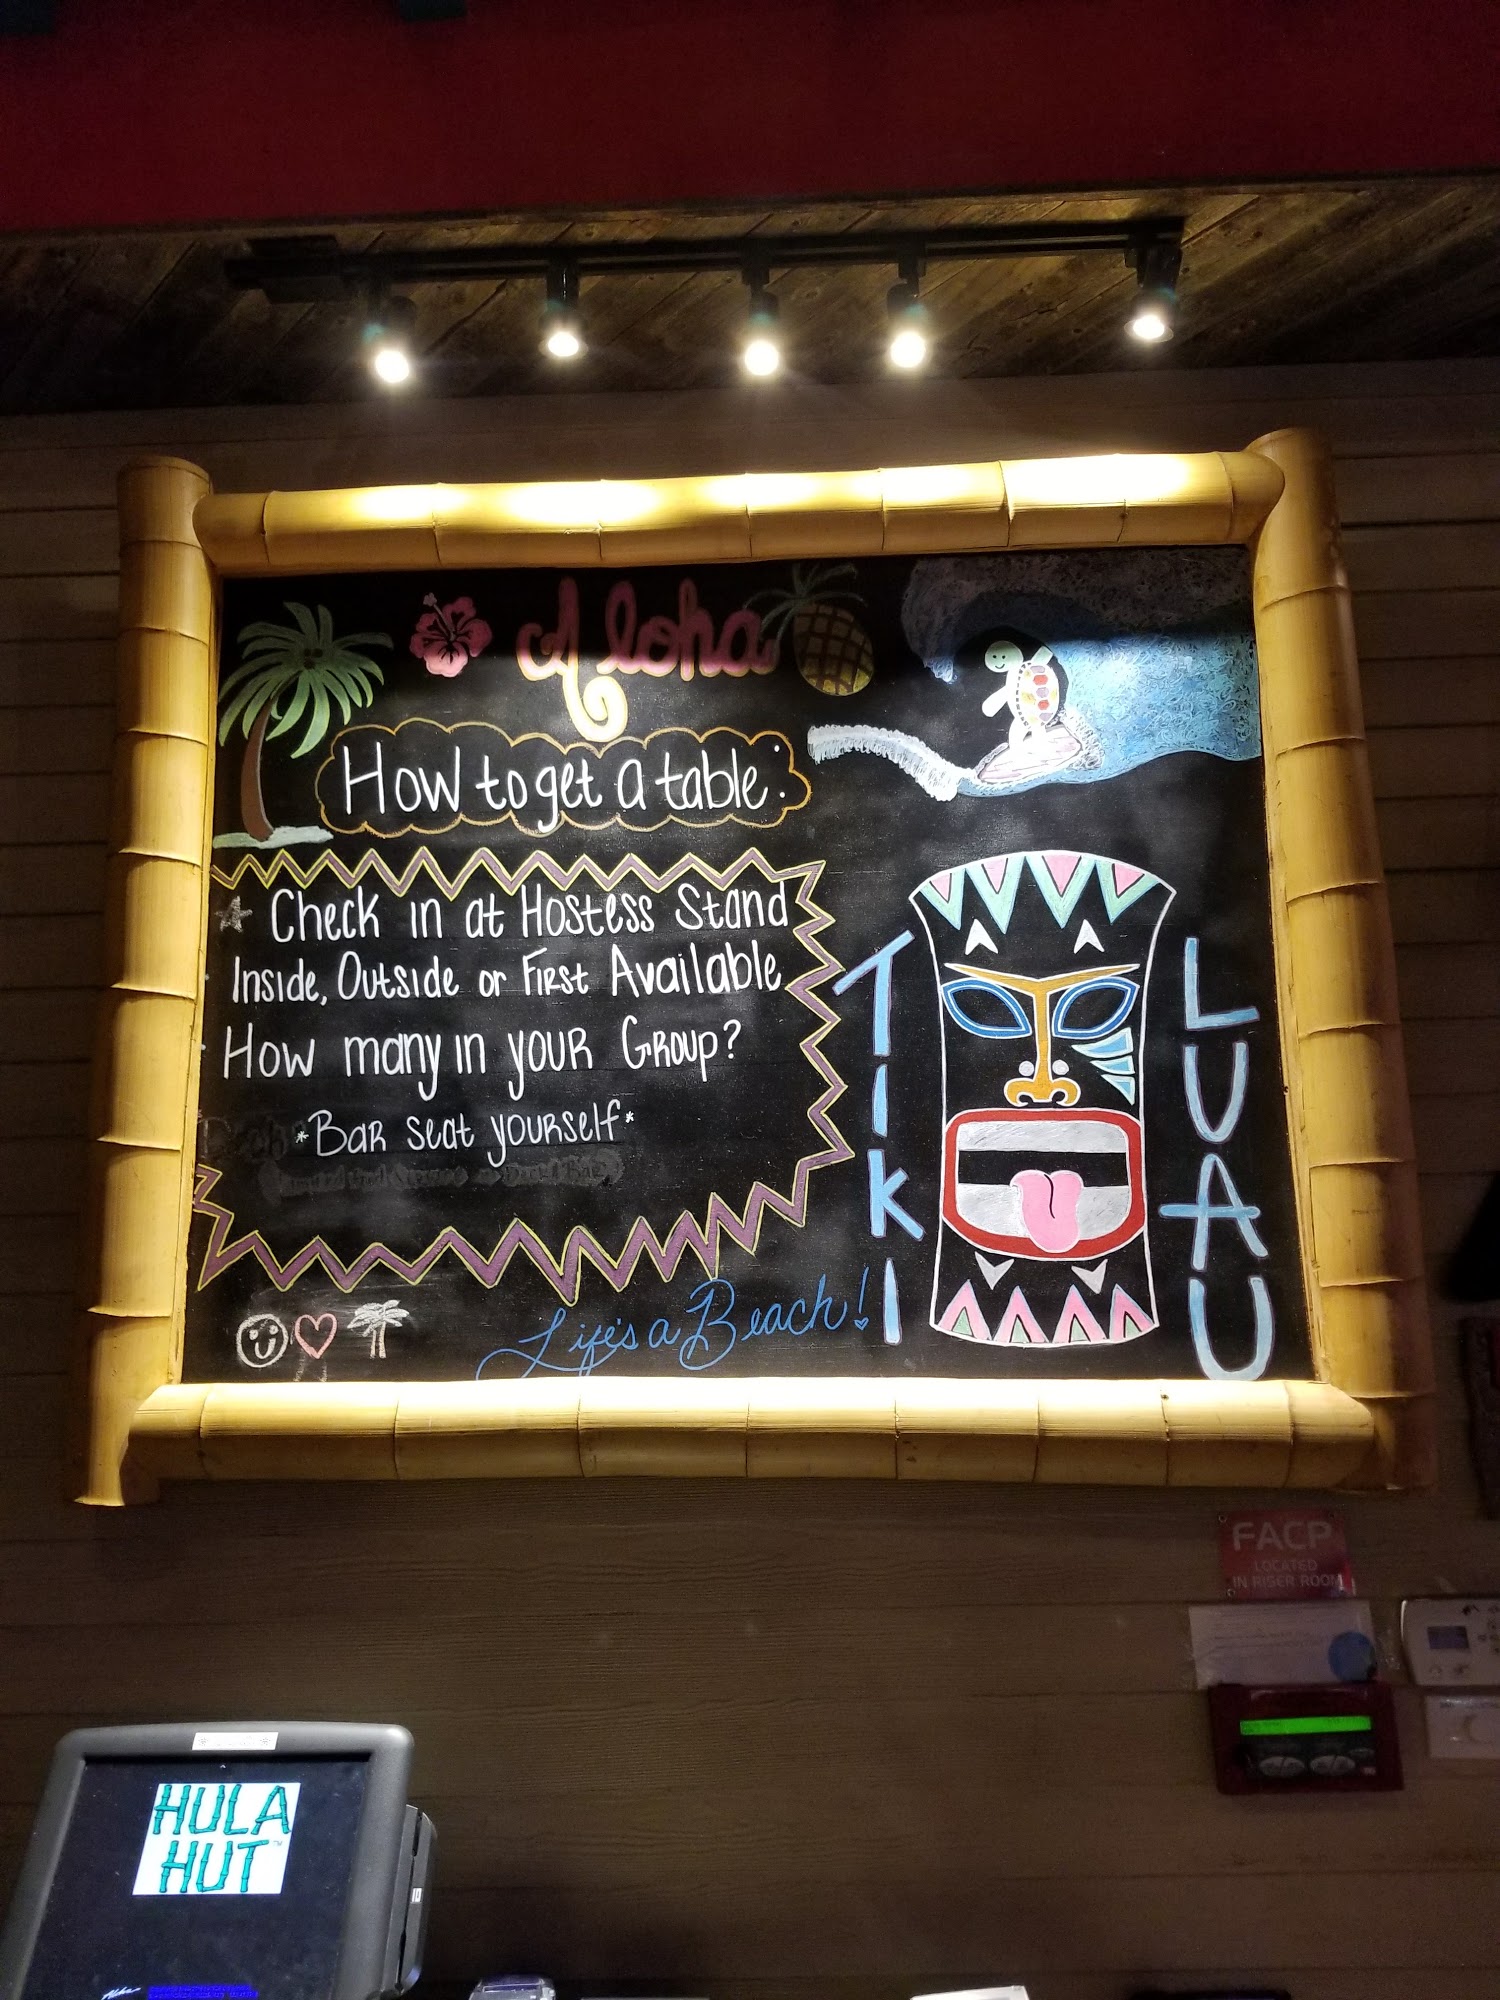 Aloha
How to get a table:
Check in at Hostess Stand
Inside, Outside or First Available
How many in your Group?
*Bar seat yourself*
Life's a Beach!
TIKI
LUAU
FACP
LOCATED
IN RISER ROOM
HULA
HUT